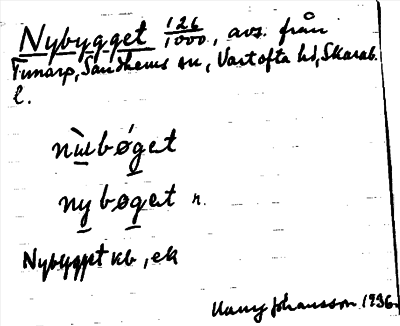 Nybygget 126/1000, avs. från
Timarp, Sandhems sn, Vartofta hd, Skarab.
l.
nẁbǿget
nybøget n.
Nybygget kb, ek
Harry Johansson 1936.